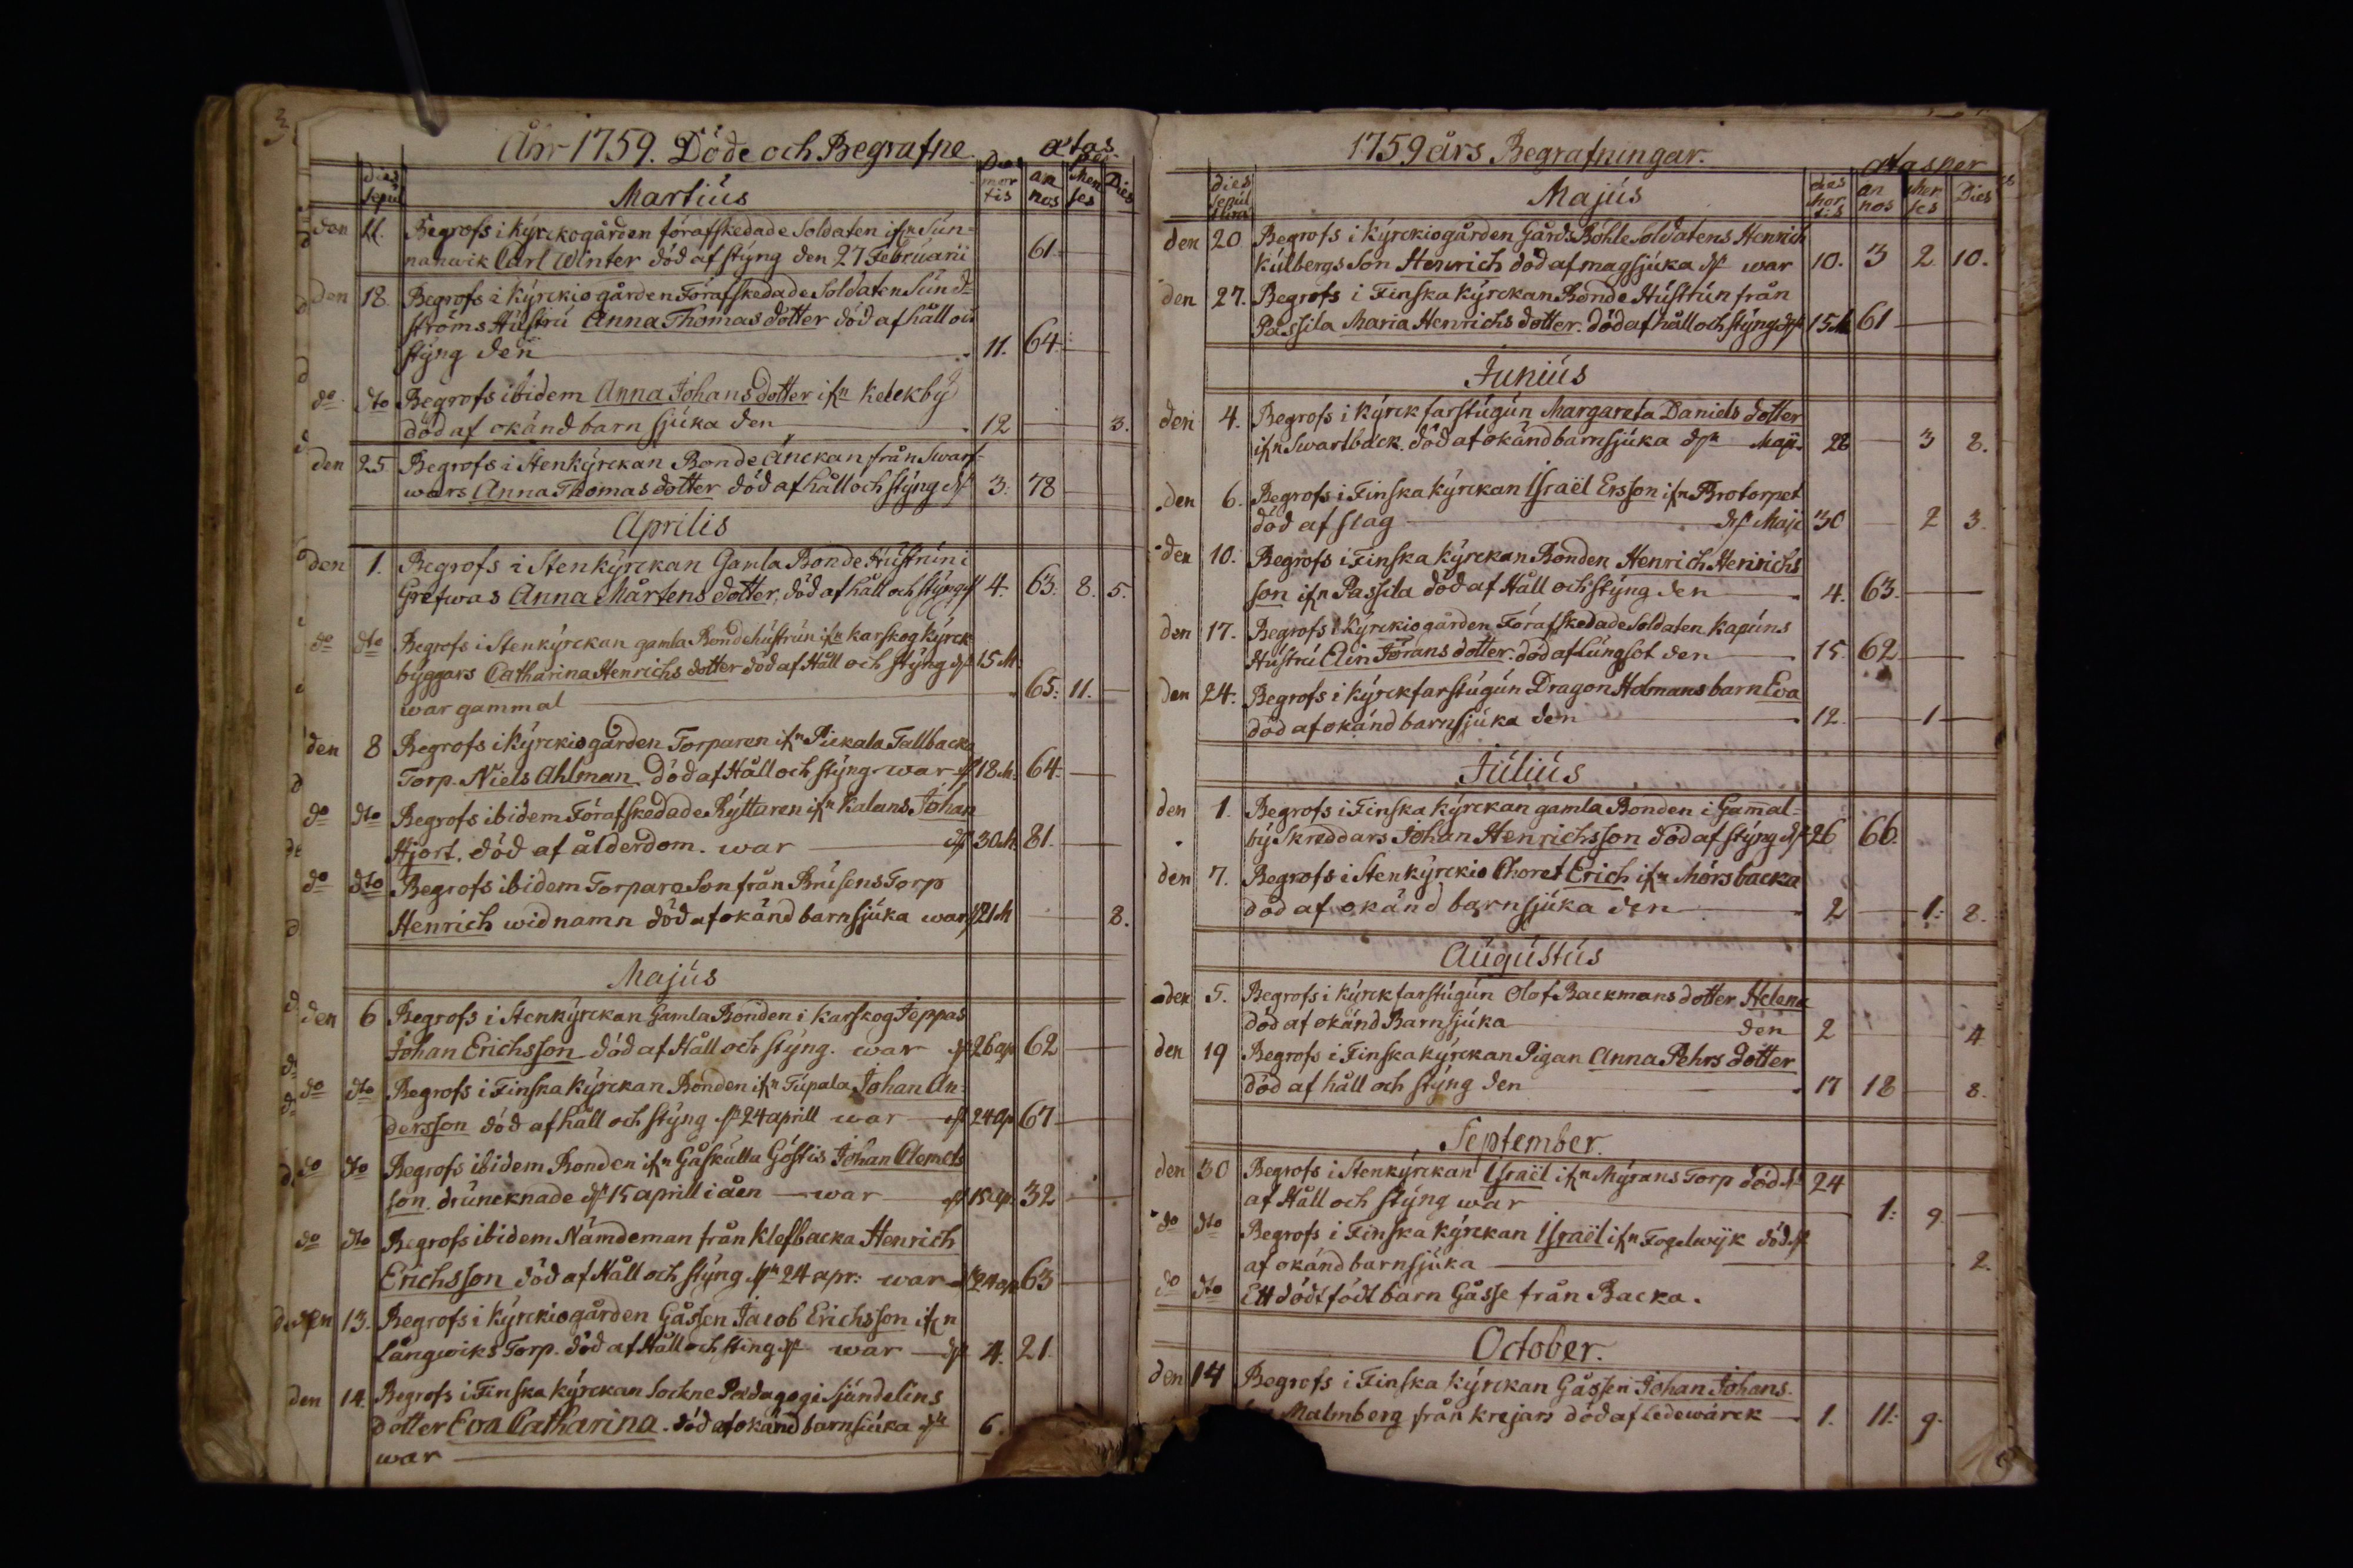 Åhr 1759. Döde och Begrafne.
ætas per
dies sepul
Martiús
Dies mor tis
an nos
Men ses
Dies
den 11. Begrofs i Kyrckogården förafskedade Soldaten ifn Sún=
nanwik Carl Winter död af stÿng den 27 Februarii 61.
den 18. Begrofs i Kyrckiogården Förafskedade Soldaten Súnd=
ströms Hústrú Anna Thomas dotter död af håll och
stÿng den 11. 64.
do dto Begrofs ibidem Anna Johans dotter ifn Keckbÿ
död af okänd barn sjúka den 12 3.
den 25 Begrofs i Stenkÿrckan Bonde Änckan från Swart
wars Anna Thomas dotter död af håll och stÿng dn 3. 78
Aprilis
den 1. Begrofs i Stenkÿrckan Gamla Bonde Hústrún i
Gretwas Anna Mårtens dotter, död af håll och stÿng dn 4. 63. 8. 5.
do dto Begrofs i Stenkÿrckan gamla Bondehústrún ifn Karskog Kÿrck
bÿggars Catharina Henrichs dotter död af Håll och stÿng dn 15 M.
war gammal 65: 11.
den 8 Begrofs i Kÿrckiogården Torparen ifn Pickala Tallbacka
Torp. Niels Ahlman död af Håll och stÿng war dn 18 M. 64.
do dto Begrofs ibidem Förafskedade Rÿttaren ifn Kalans Johan
Hjort. död af ålderdom. war dn 30 M. 81.
do dto Begrofs ibidem Torpare Son från Brúsens Torp
Henrich wid namn död af okänd barnsjúka war dn 21 M 8.
Majús
den 6 Begrofs i Stenkÿrckan Gamla Bonden i Karskog Jeppas
Johan Erichsson död af Håll och stÿng. war dn 26 ap 62
do dto Begrofs i Finska Kÿrckan Bonden ifn Túpala Johan An=
dersson död af håll och stÿng dn 24 aprill war dn 24 ap 67
do dto Begrofs ibidem Bonden ifn Gåskulla Göstis Johan Clemets
son. drúncknade dn 15 aprill i åen war dn 15 ap. 32
do dto Begrofs ibidem Nämdeman från Klefbacka Henrich
Erichsson död af Håll och stÿng dn 24 apr: war dn 24 ap 63
den 13. Begrofs i Kÿrckiogården Gåssen Jacob Erichsson ifrn
Långwiks Torp. död af Håll och sting dn war dn 4. 21.
den 14. Begrofs i Finska Kÿrckan Sockne Pædagogi Sjúndelins
dotter Eva Catharina. död af okänd barnsiúka dn 6.
war
1759 års Begrafningar.
ætas per
dies sepúl túræ
Majús
dies mor tis
an nos
Men ses
Dies
den 20 Begrofs i Kÿrckiogården Gårds Böhle Soldatens Henrich
Kúlbergs Son Henrich död af magsjúka dn war 10. 3 2. 10.
den 27. Begrofs i Finska Kÿrckan Bonde Hústrún från
Passila Maria Henrichs dotter. död af håll och stÿng dn 15 M 61
Júniús
den 4. Begrofs i Kÿrckfarstúgún Margareta Daniels dotter
ifn Swartback. död af okänd barnsjúka dn Maji. 28 3 8.
den 6. Begrofs i Finska Kÿrckan Israël Ersson ifn Brotorpet
död af slag dn Maji 30 2 3.
den 10. Begrofs i Finska Kÿrckan Bonden Henrich Henrichs
son ifn Passila död af Håll och stÿng den 4. 63.
den 17. Begrofs i Kÿrckiogården Förafskedade Soldaten Kapúns
Hústrú Elin Jörans dotter. död af Lúngsot den 15. 62
den 24. Begrofs i Kÿrckfarstúgún Dragon Holmans barn Eva
död af okänd barnsjúka den 12. 1
Júliús
den 1. Begrofs i Finska Kÿrckan gamla Bonden i Gamal=
bÿ Skreddars Johan Henrichsson död af stÿng dn 26 66.
den 7. Begrofs i Stenkÿrckio Choret Erich ifn Morsbacka
död af okänd barnsjúka den 2 1: 8.
Aúgústús
den 5. Begrofs i Kÿrckfarstúgún Olof Backmans dotter Helena
död af okänd Barnsjúka den 2 4
den 19 Begrofs i Finska Kÿrckan Pigan Anna Pehrs dotter
död af håll och stÿng den 17 18 8.
September.
den 30 Begrofs i Stenkÿrckan Israël ifn Mÿrans Torp död dn 24
af Håll och stÿng war 1: 9.
do dto Begrofs i Finska Kÿrckan Israël ifn Fogelwÿk död dn
af okänd barnsjúka 2.
do dto Ett dödt födt barn Gåsse från Backa.
October.
den 14 Begrofs i Finska Kÿrckan Gåssen Johan Johans-
Malmberg från Krejars död af Ledewärck 1. 11: 9.